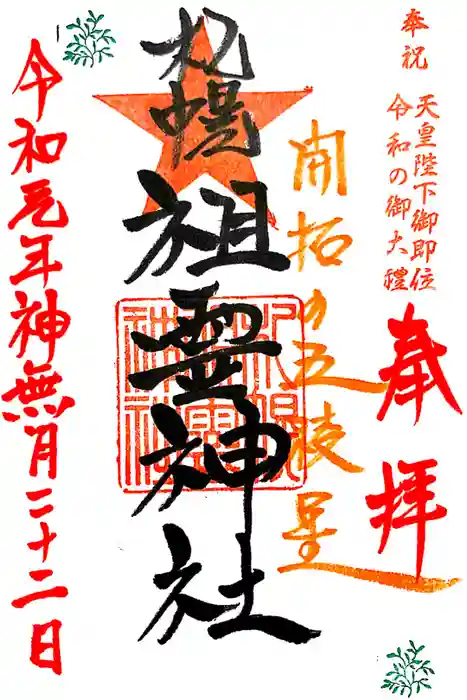 奉祝
天皇陛下御即位
令和の御大禮
奉拝
開拓の五稜星
札幌
祖霊神社
令和元年神無月二十二日